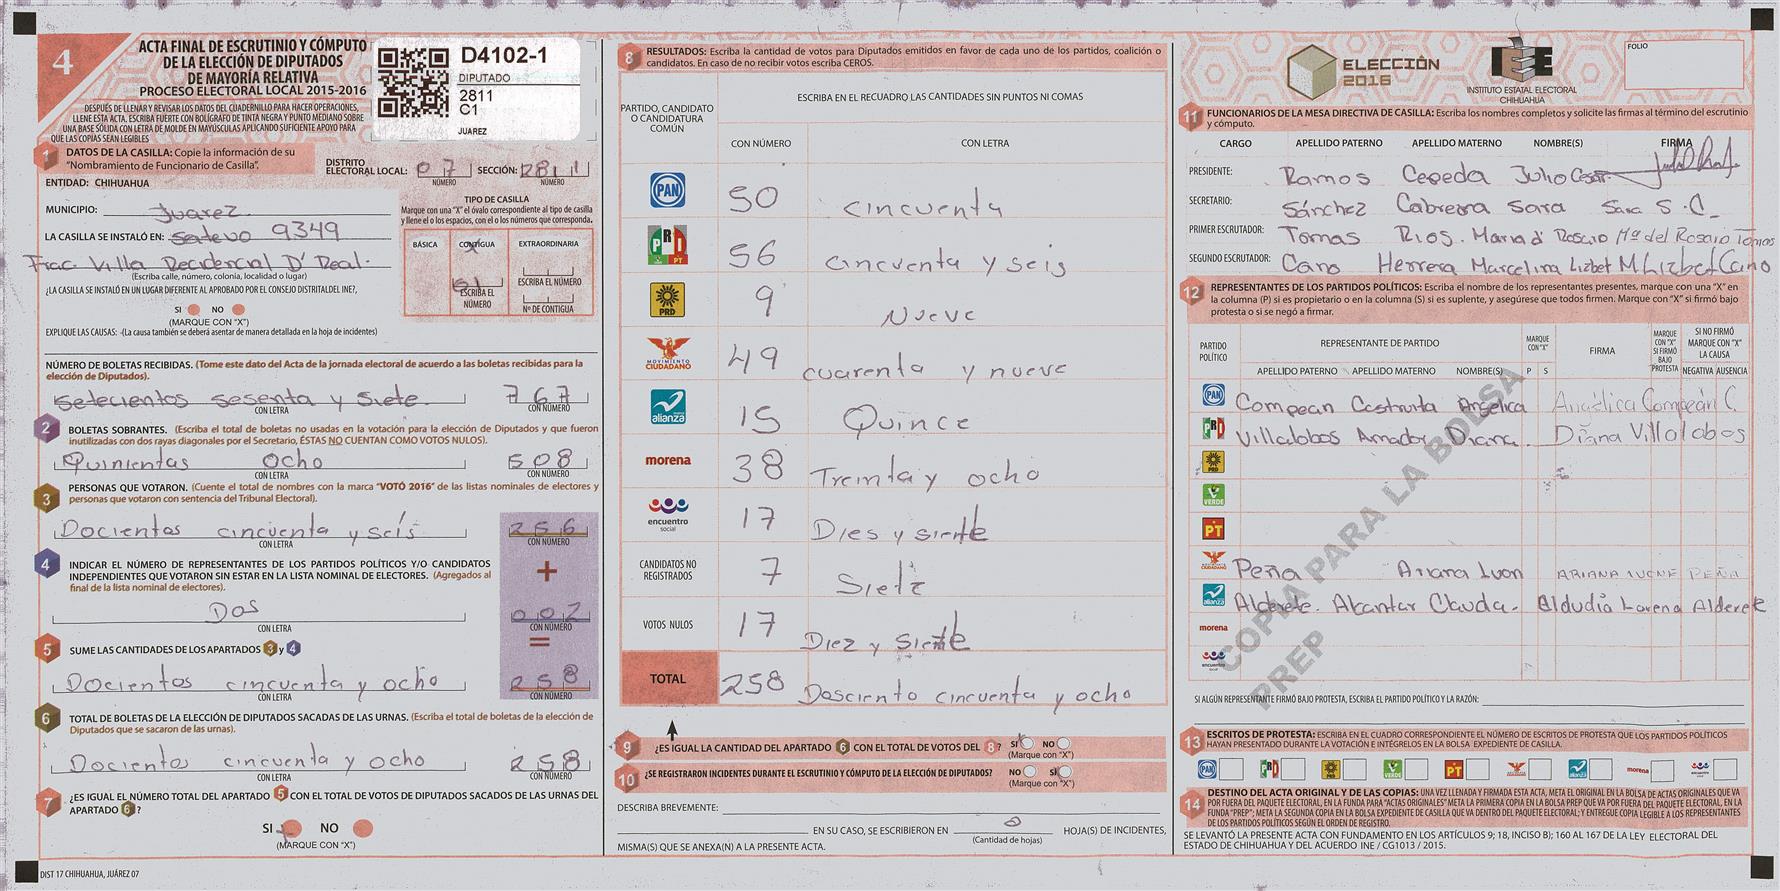 4
ACTA FINAL DE ESCRUTINIO Y CÓMPUTO
DE LA ELECCIÓN DE DIPUTADOS
DE MAYORÍA RELATIVA
PROCESO ELECTORAL LOCAL 2015-2016
DESPUÉS DE LLENAR Y REVISAR LOS DATOS DEL CUADERNILLO PARA HACER OPERACIONES,
LLENE ESTA ACTA, ESCRIBA FUERTE CON BOLÍGRAFO DE TINTA NEGRA Y PUNTO MEDIANO SOBRE
UNA BASE SÓLIDA CON LETRA DE MOLDE EN MAYÚSCULAS APLICANDO SUFICIENTE APOYO PARA
QUE LAS COPIAS SEAN LEGIBLES
D4102-1
DIPUTADO
2811
C1
JUAREZ
1 DATOS DE LA CASILLA: Copie la información de su
"Nombramiento de Funcionario de Casilla".
DISTRITO
ELECTORAL LOCAL: 07 SECCIÓN: 2811
NÚMERO NÚMERO
ENTIDAD: CHIHUAHUA
MUNICIPIO: Juarez
LA CASILLA SE INSTALÓ EN: satevo 9349
Frac. Villa Recidencial D' Real.
(Escriba calle, número, colonia, localidad o lugar)
¿LA CASILLA SE INSTALÓ EN UN LUGAR DIFERENTE AL APROBADO POR EL CONSEJO DISTRITAL DEL INE?,
SI NO
(MARQUE CON "X")
EXPLIQUE LAS CAUSAS: -(La causa también se deberá asentar de manera detallada en la hoja de incidentes)
TIPO DE CASILLA
Marque con una "X" el óvalo correspondiente al tipo de casilla
y llene el o los espacios, con el o los números que corresponda.
BÁSICA CONTIGUA EXTRAORDINARIA
01
ESCRIBA EL NÚMERO
ESCRIBA EL NÚMERO
Nº DE CONTIGUA
NÚMERO DE BOLETAS RECIBIDAS. (Tome este dato del Acta de la jornada electoral de acuerdo a las boletas recibidas para la
elección de Diputados).
setecientos sesenta y siete. 767
CON LETRA CON NÚMERO
2 BOLETAS SOBRANTES. (Escriba el total de boletas no usadas en la votación para la elección de Diputados y que fueron
inutilizadas con dos rayas diagonales por el Secretario, ÉSTAS NO CUENTAN COMO VOTOS NULOS).
Quinientas ocho 508
CON LETRA CON NÚMERO
3 PERSONAS QUE VOTARON. (Cuente el total de nombres con la marca "VOTÓ 2016" de las listas nominales de electores y
personas que votaron con sentencia del Tribunal Electoral).
Docientos cincuenta y seis 256
CON LETRA CON NÚMERO
4 INDICAR EL NÚMERO DE REPRESENTANTES DE LOS PARTIDOS POLÍTICOS Y/O CANDIDATOS
INDEPENDIENTES QUE VOTARON SIN ESTAR EN LA LISTA NOMINAL DE ELECTORES. (Agregados al
final de la lista nominal de electores).
+
Dos 002
CON LETRA CON NÚMERO
=
5 SUME LAS CANTIDADES DE LOS APARTADOS 3 y 4
Docientos cincuenta y ocho 258
CON LETRA CON NÚMERO
6 TOTAL DE BOLETAS DE LA ELECCIÓN DE DIPUTADOS SACADAS DE LAS URNAS. (Escriba el total de boletas de la elección de
Diputados que se sacaron de las urnas).
Docientos cincuenta y ocho 258
CON LETRA CON NÚMERO
7 ¿ES IGUAL EL NÚMERO TOTAL DEL APARTADO 5 CON EL TOTAL DE VOTOS DE DIPUTADOS SACADOS DE LAS URNAS DEL
APARTADO 6?
SI NO
(MARQUE CON "X")
DIST 17 CHIHUAHUA, JUÁREZ 07
8 RESULTADOS: Escriba la cantidad de votos para Diputados emitidos en favor de cada uno de los partidos, coalición o
candidatos. En caso de no recibir votos escriba CEROS.
PARTIDO, CANDIDATO
O CANDIDATURA
COMÚN
ESCRIBA EN EL RECUADRO LAS CANTIDADES SIN PUNTOS NI COMAS
CON NÚMERO CON LETRA
PAN 50 cincuenta
PRI PT 56 cincuenta y seis
PRD 9 Nueve
MOVIMIENTO CIUDADANO 49 cuarenta y nueve
alianza 15 Quince
morena 38 Treinta y ocho
encuentro social 17 Dies y siete
CANDIDATOS NO REGISTRADOS 7 Siete
VOTOS NULOS 17 Diez y Siete
TOTAL 258 Dosciento cincuenta y ocho
9 ¿ES IGUAL LA CANTIDAD DEL APARTADO 6 CON EL TOTAL DE VOTOS DEL 8? SI NO
(Marque con "X")
10 ¿SE REGISTRARON INCIDENTES DURANTE EL ESCRUTINIO Y CÓMPUTO DE LA ELECCIÓN DE DIPUTADOS? NO SI
(Marque con "X")
DESCRIBA BREVEMENTE:
EN SU CASO, SE ESCRIBIERON EN 0 HOJA(S) DE INCIDENTES,
(Cantidad de hojas)
MISMA(S) QUE SE ANEXA(N) A LA PRESENTE ACTA.
ELECCIÓN
2016
IEE
INSTITUTO ESTATAL ELECTORAL
CHIHUAHUA
FOLIO
11 FUNCIONARIOS DE LA MESA DIRECTIVA DE CASILLA: Escriba los nombres completos y solicite las firmas al término del escrutinio
y cómputo.
CARGO APELLIDO PATERNO APELLIDO MATERNO NOMBRE(S) FIRMA
PRESIDENTE: Ramos Cepeda Julio Cesar
SECRETARIO: Sánchez Cabrera Sara Sara S.C.
PRIMER ESCRUTADOR: Tomas Rios. Maria d' Rosario Mª del Rosario Tomas
SEGUNDO ESCRUTADOR: Cano Herrera Marcelina Lizbet M Lizbet Cano
12 REPRESENTANTES DE LOS PARTIDOS POLÍTICOS: Escriba el nombre de los representantes presentes, marque con una "X" en
la columna (P) si es propietario o en la columna (S) si es suplente, y asegúrese que todos firmen. Marque con "X" si firmó bajo
protesta o si se negó a firmar.
PARTIDO POLÍTICO
REPRESENTANTE DE PARTIDO
MARQUE CON "X"
FIRMA
MARQUE CON "X" SI FIRMÓ BAJO PROTESTA
SI NO FIRMÓ MARQUE CON "X" LA CAUSA
APELLIDO PATERNO APELLIDO MATERNO NOMBRE(S) P S NEGATIVA AUSENCIA
PAN Compean Castruita Angelica Angélica Compeán C.
PRI Villalobos Amador Diana. Diana Villalobos
PRD
VERDE
PT
Peña Ariana Ivon ARIANA IVONE PEÑA
alianza Alderete. Alcantar Clauda. Lorena Alderete
morena
encuentro social
COPIA PARA LA BOLSA
PREP
SI ALGÚN REPRESENTANTE FIRMÓ BAJO PROTESTA, ESCRIBA EL PARTIDO POLÍTICO Y LA RAZÓN:
13 ESCRITOS DE PROTESTA: ESCRIBA EN EL CUADRO CORRESPONDIENTE EL NÚMERO DE ESCRITOS DE PROTESTA QUE LOS PARTIDOS POLÍTICOS
HAYAN PRESENTADO DURANTE LA VOTACIÓN E INTÉGRELOS EN LA BOLSA EXPEDIENTE DE CASILLA.
PAN PRI PRD VERDE PT alianza morena
14 DESTINO DEL ACTA ORIGINAL Y DE LAS COPIAS: UNA VEZ LLENADA Y FIRMADA ESTA ACTA, META EL ORIGINAL EN LA BOLSA DE ACTAS ORIGINALES QUE VA
POR FUERA DEL PAQUETE ELECTORAL, EN LA FUNDA PARA "ACTAS ORIGINALES" META LA PRIMERA COPIA EN LA BOLSA PREP QUE VA POR FUERA DEL PAQUETE ELECTORAL, EN LA
FUNDA "PREP"; META LA SEGUNDA COPIA EN LA BOLSA EXPEDIENTE DE CASILLA QUE VA DENTRO DEL PAQUETE ELECTORAL; Y ENTREGUE COPIA LEGIBLE A LOS REPRESENTANTES
DE LOS PARTIDOS POLÍTICOS SEGÚN EL ORDEN DE REGISTRO.
SE LEVANTÓ LA PRESENTE ACTA CON FUNDAMENTO EN LOS ARTÍCULOS 9; 18, INCISO B); 160 AL 167 DE LA LEY ELECTORAL DEL
ESTADO DE CHIHUAHUA Y DEL ACUERDO INE / CG1013 / 2015.